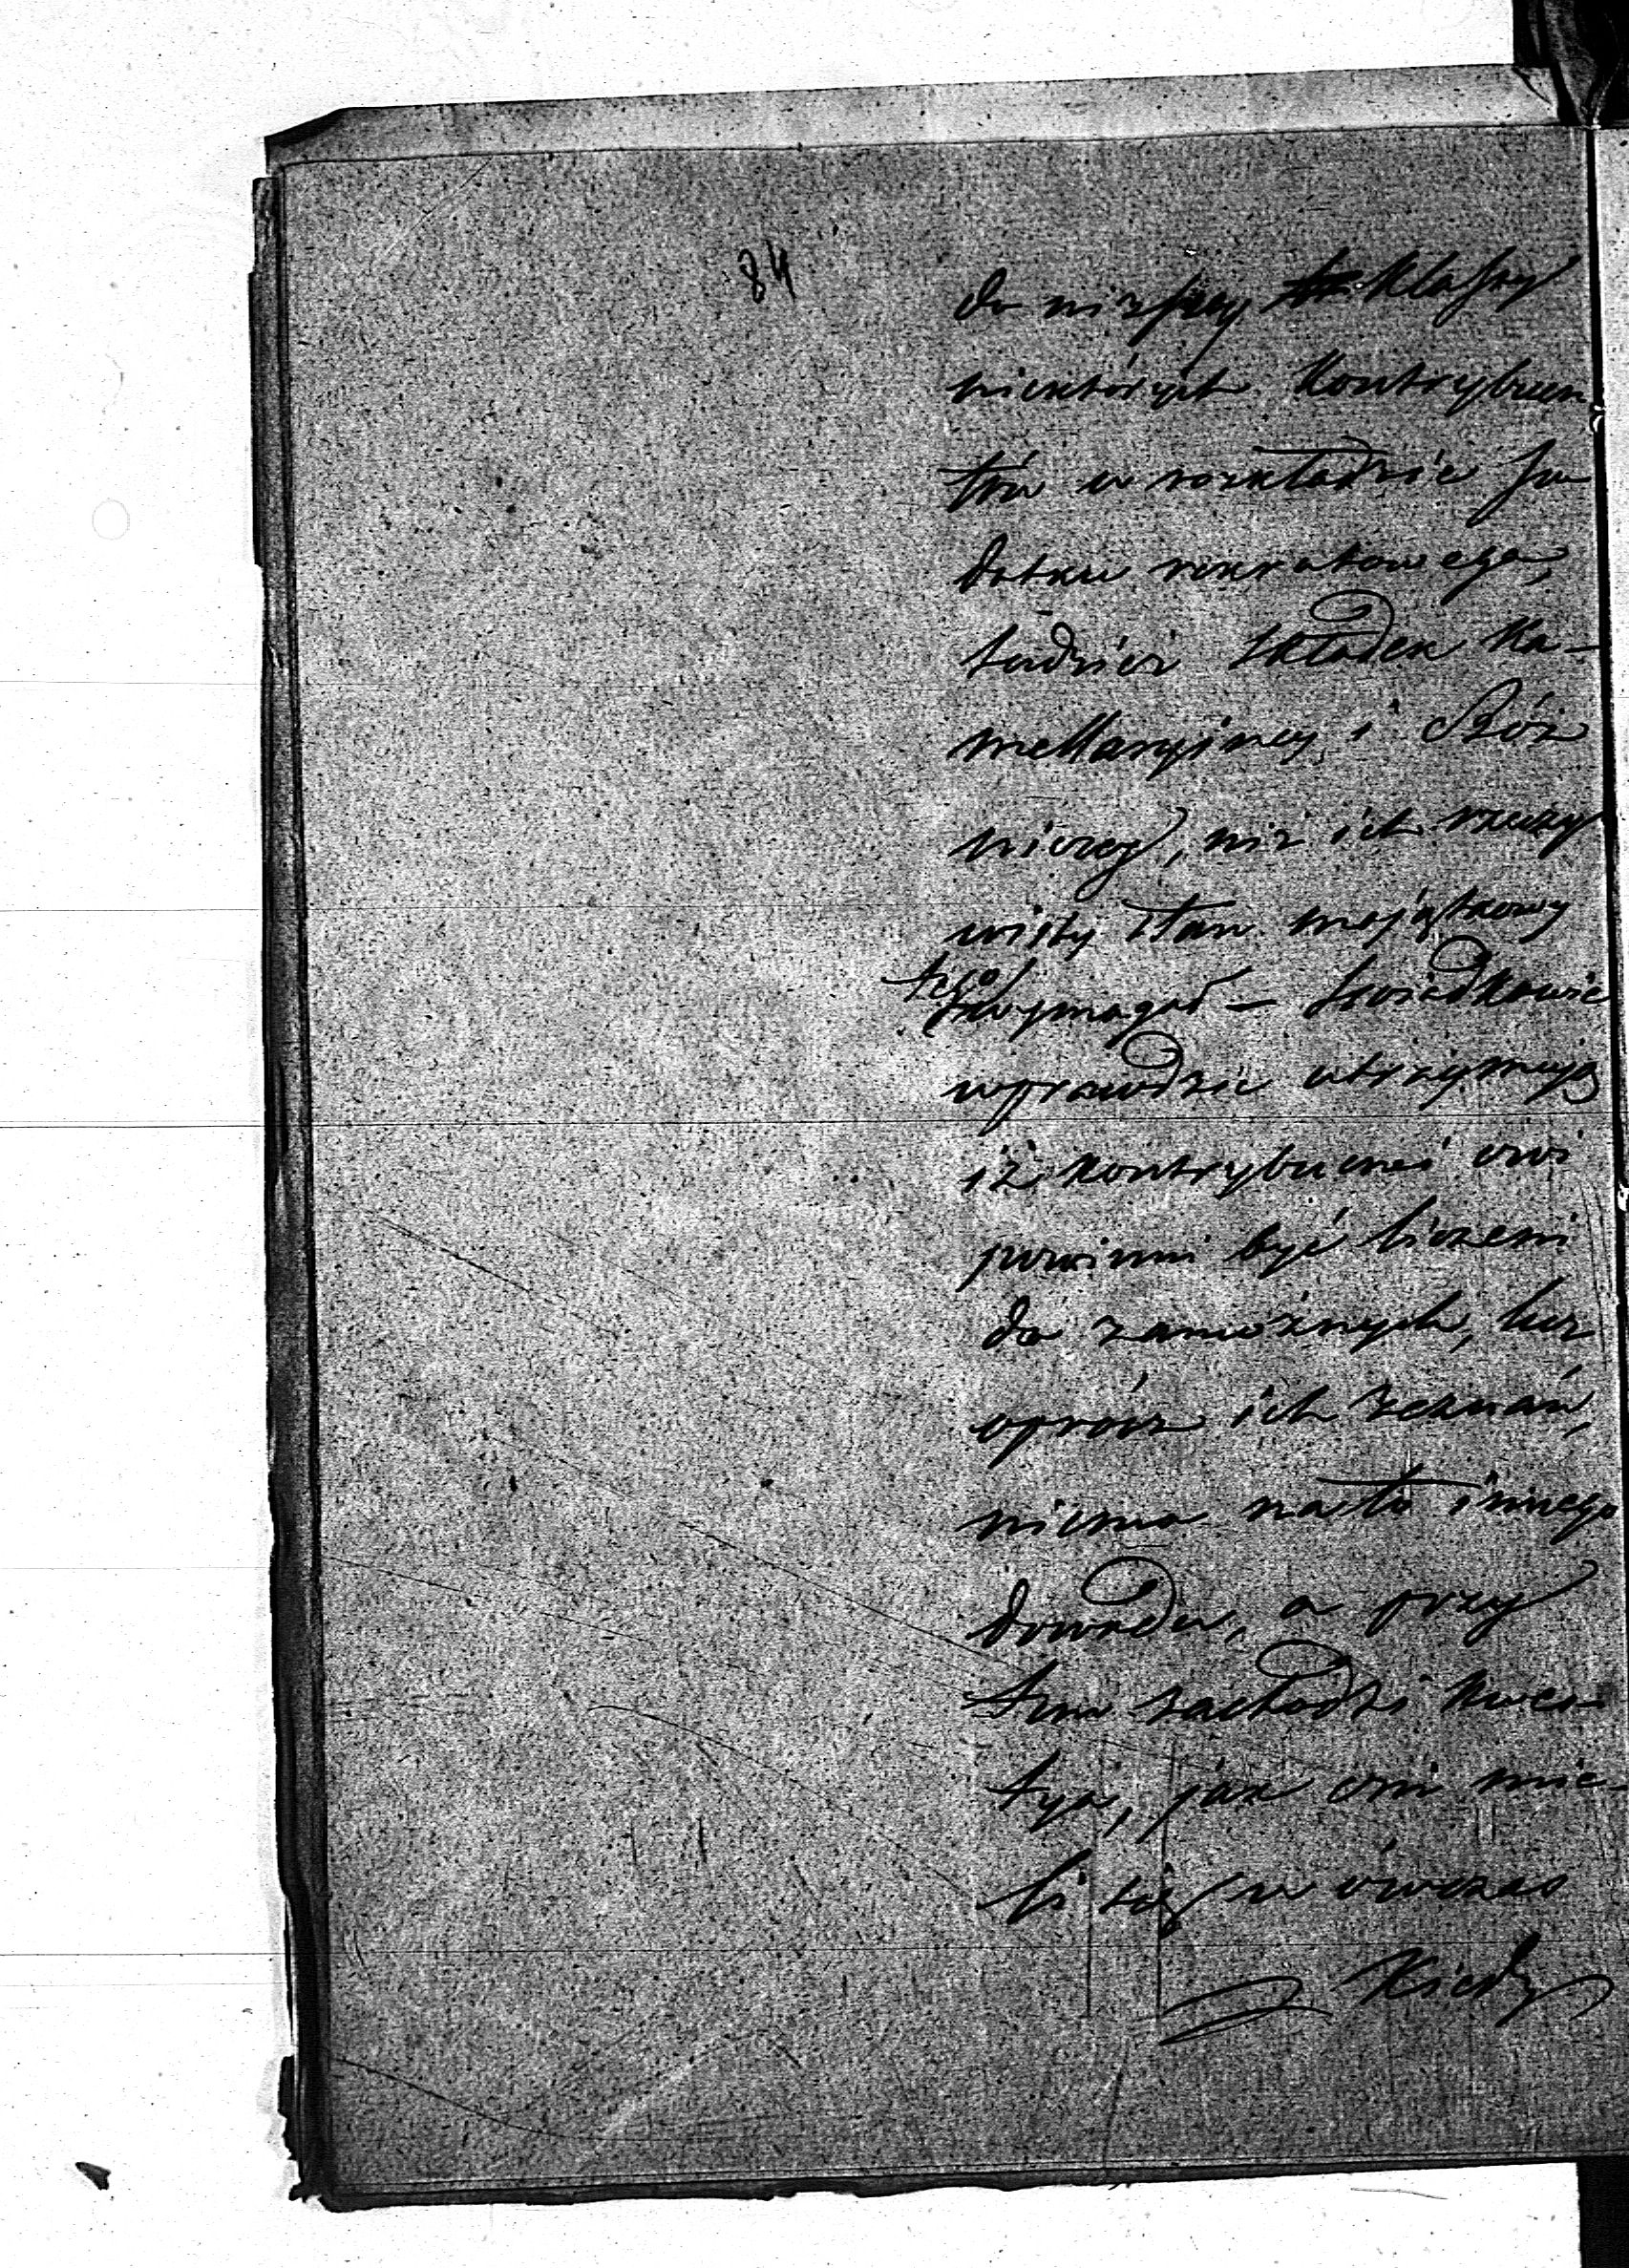 84
do niższey klassy
niektórych kontrybuen
tów w rozkładzie po
datku rekrutowego,
tudzież składek Ka-
mellaryjney i Bóż
niczey, niż ich rzeczy
wisty stan majątkowy
tego wymagał – Świadkowie
wprawdzie utrzymują
iż kontrybuenci owi
powinni być liczeni
do zamożnych, lecz
oprócz ich zeznań,
niema na to innego
dowodu, a przy
tem zachodzi kwes-
tya, jak oni mie-
li się w ówczas
Kiedy